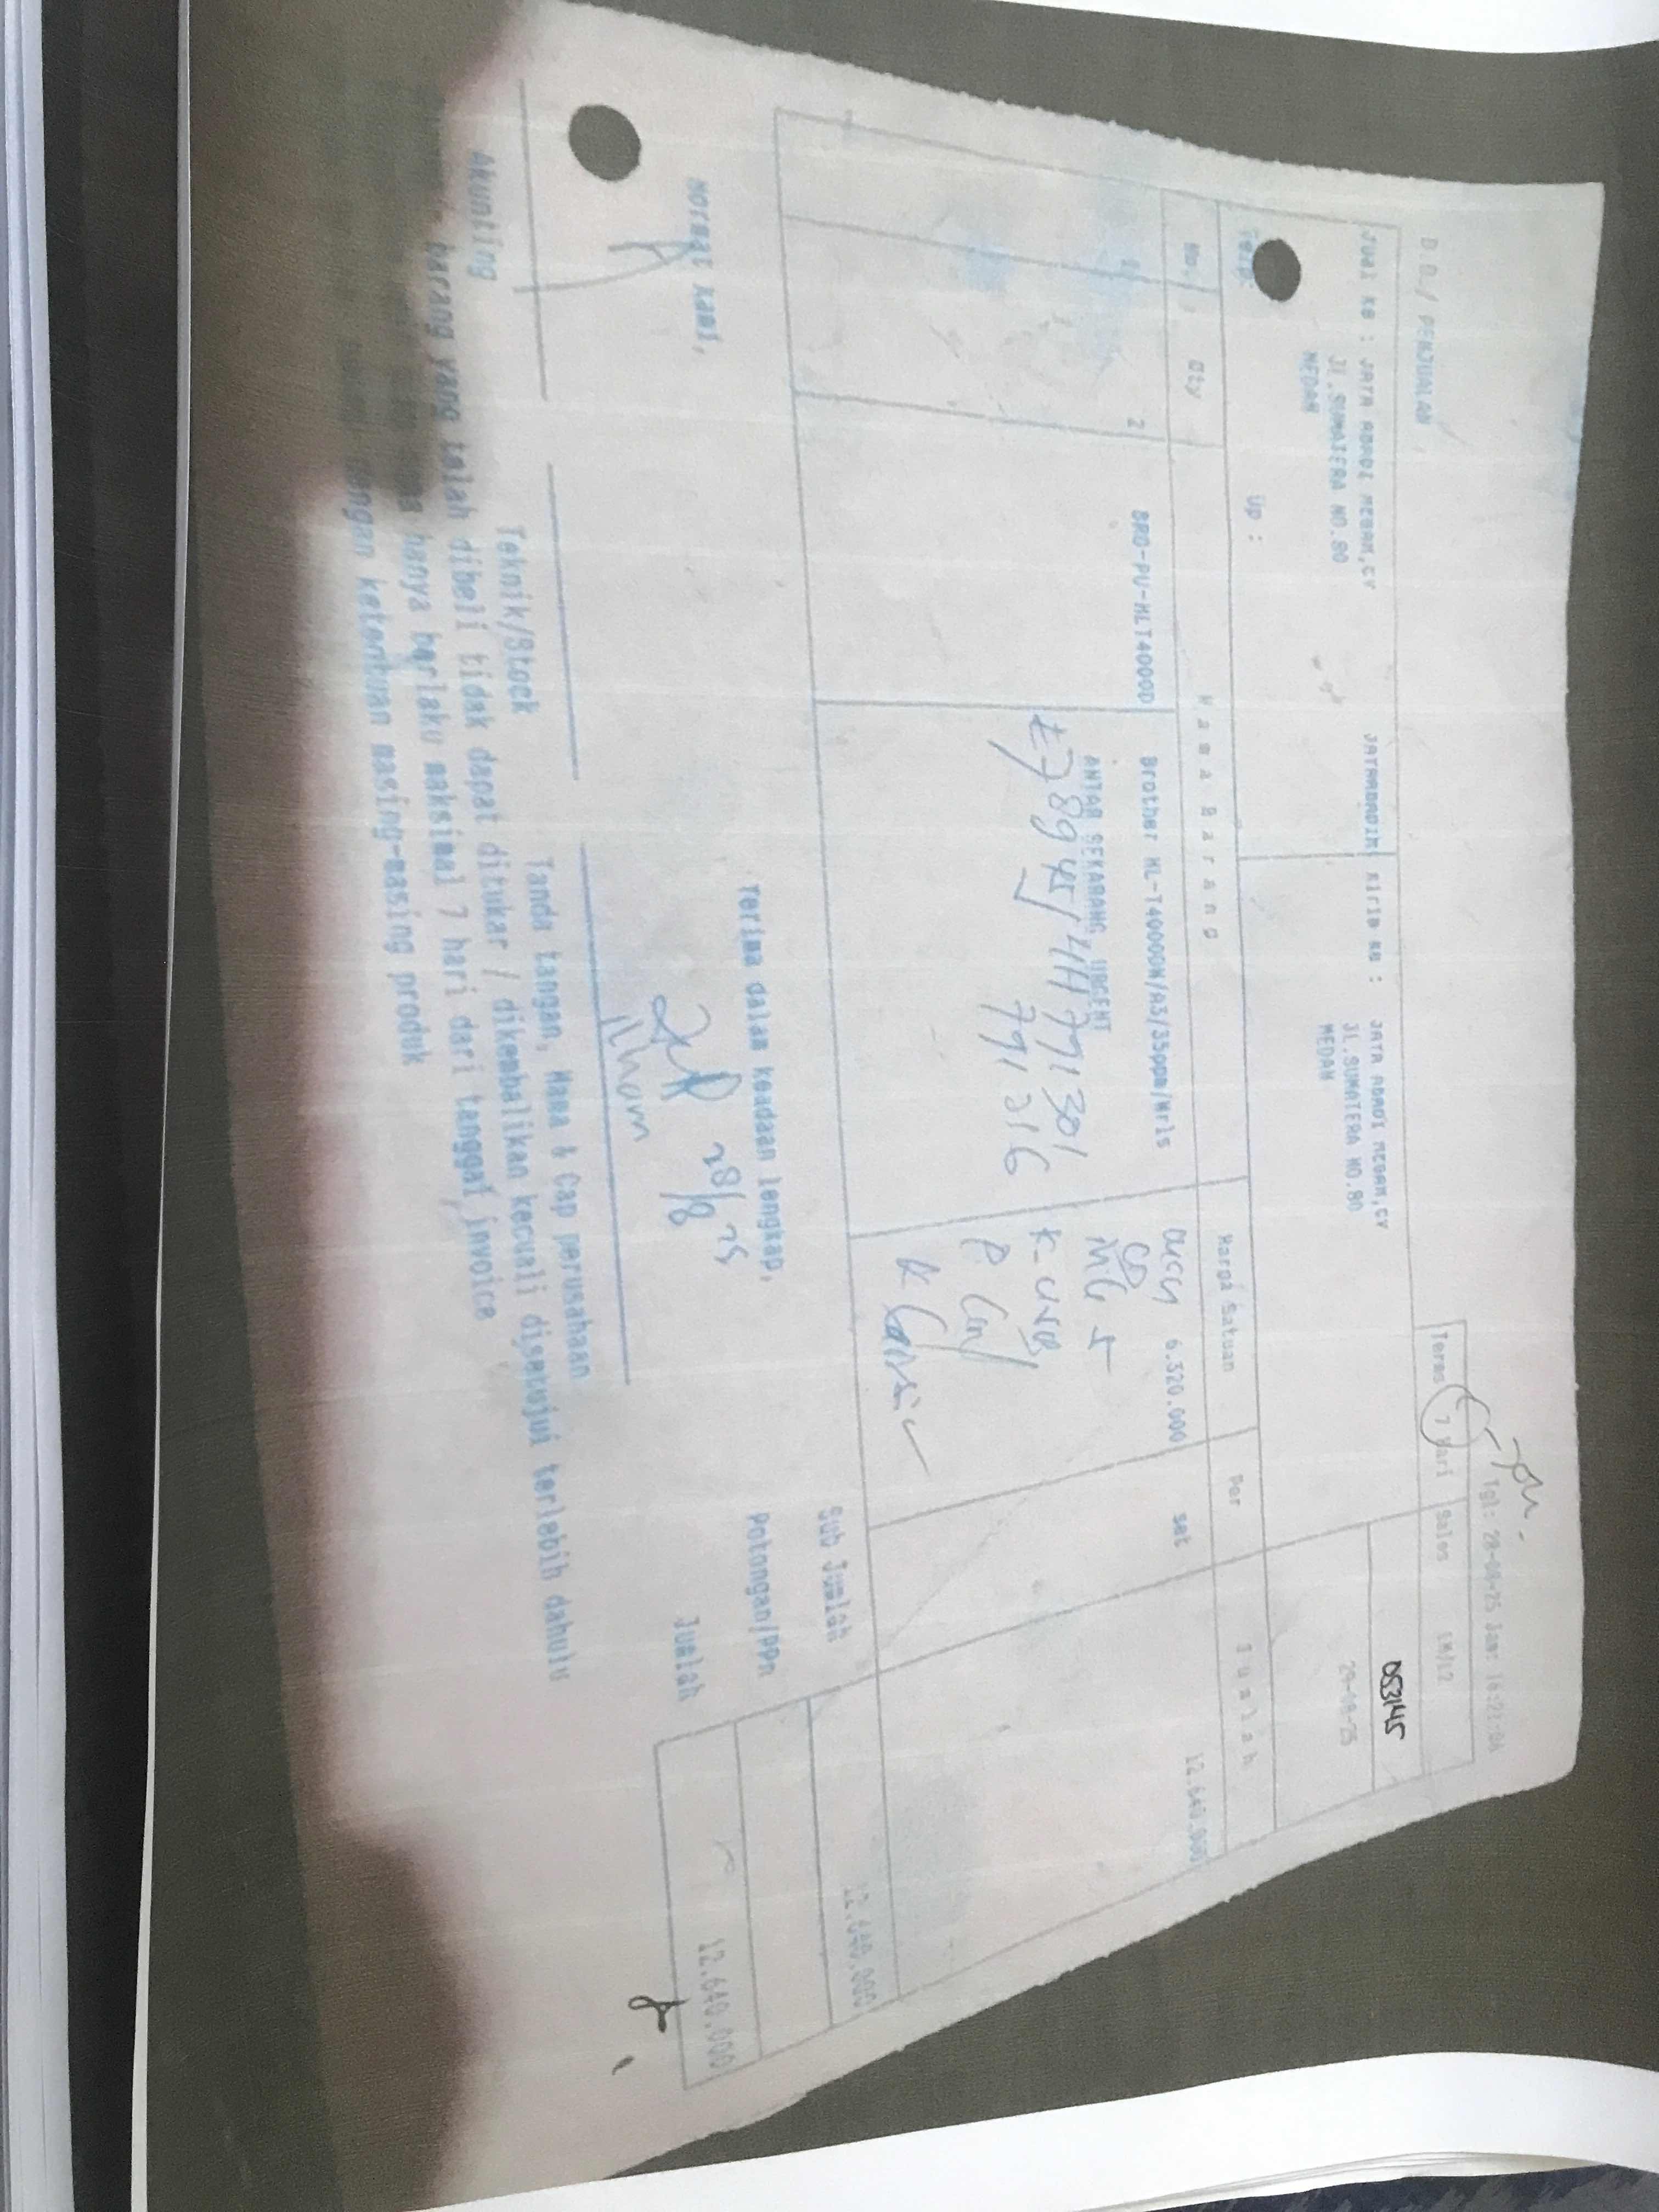 D.O./ PENJUALAN
Tgl: 28-08-25 Jam: 16:21:06
Terms 7 Hari Sales
Jual ke : JAYA ABADI MEGAH,CV
JL.SUMATERA NO.80
MEDAN
Kirim ke : JAYA ABADI MEGAH,CV
JL.SUMATERA NO.80
MEDAN
053145
29-08-25
Up :
No. Qty Nama Barang Harga Satuan Per Jumlah
2 BRO-PU-HLT4000D Brother HL-T4000DW/A3/35ppm/Wrls 6.320.000 set 12.640.000
ANTAR SEKARANG URGENT
791301
791316
Sub Jumlah 12.640.000
Potongan/PPn
Jumlah 12.640.000
Hormat kami,
Terima dalam keadaan lengkap,
28/8 25
Ilham
Akunting
Teknik/Stock
Tanda tangan, Nama & Cap perusahaan
barang yang telah dibeli tidak dapat ditukar / dikembalikan kecuali disetujui terlebih dahulu
hanya berlaku maksimal 7 hari dari tanggal invoice
dengan ketentuan masing-masing produk